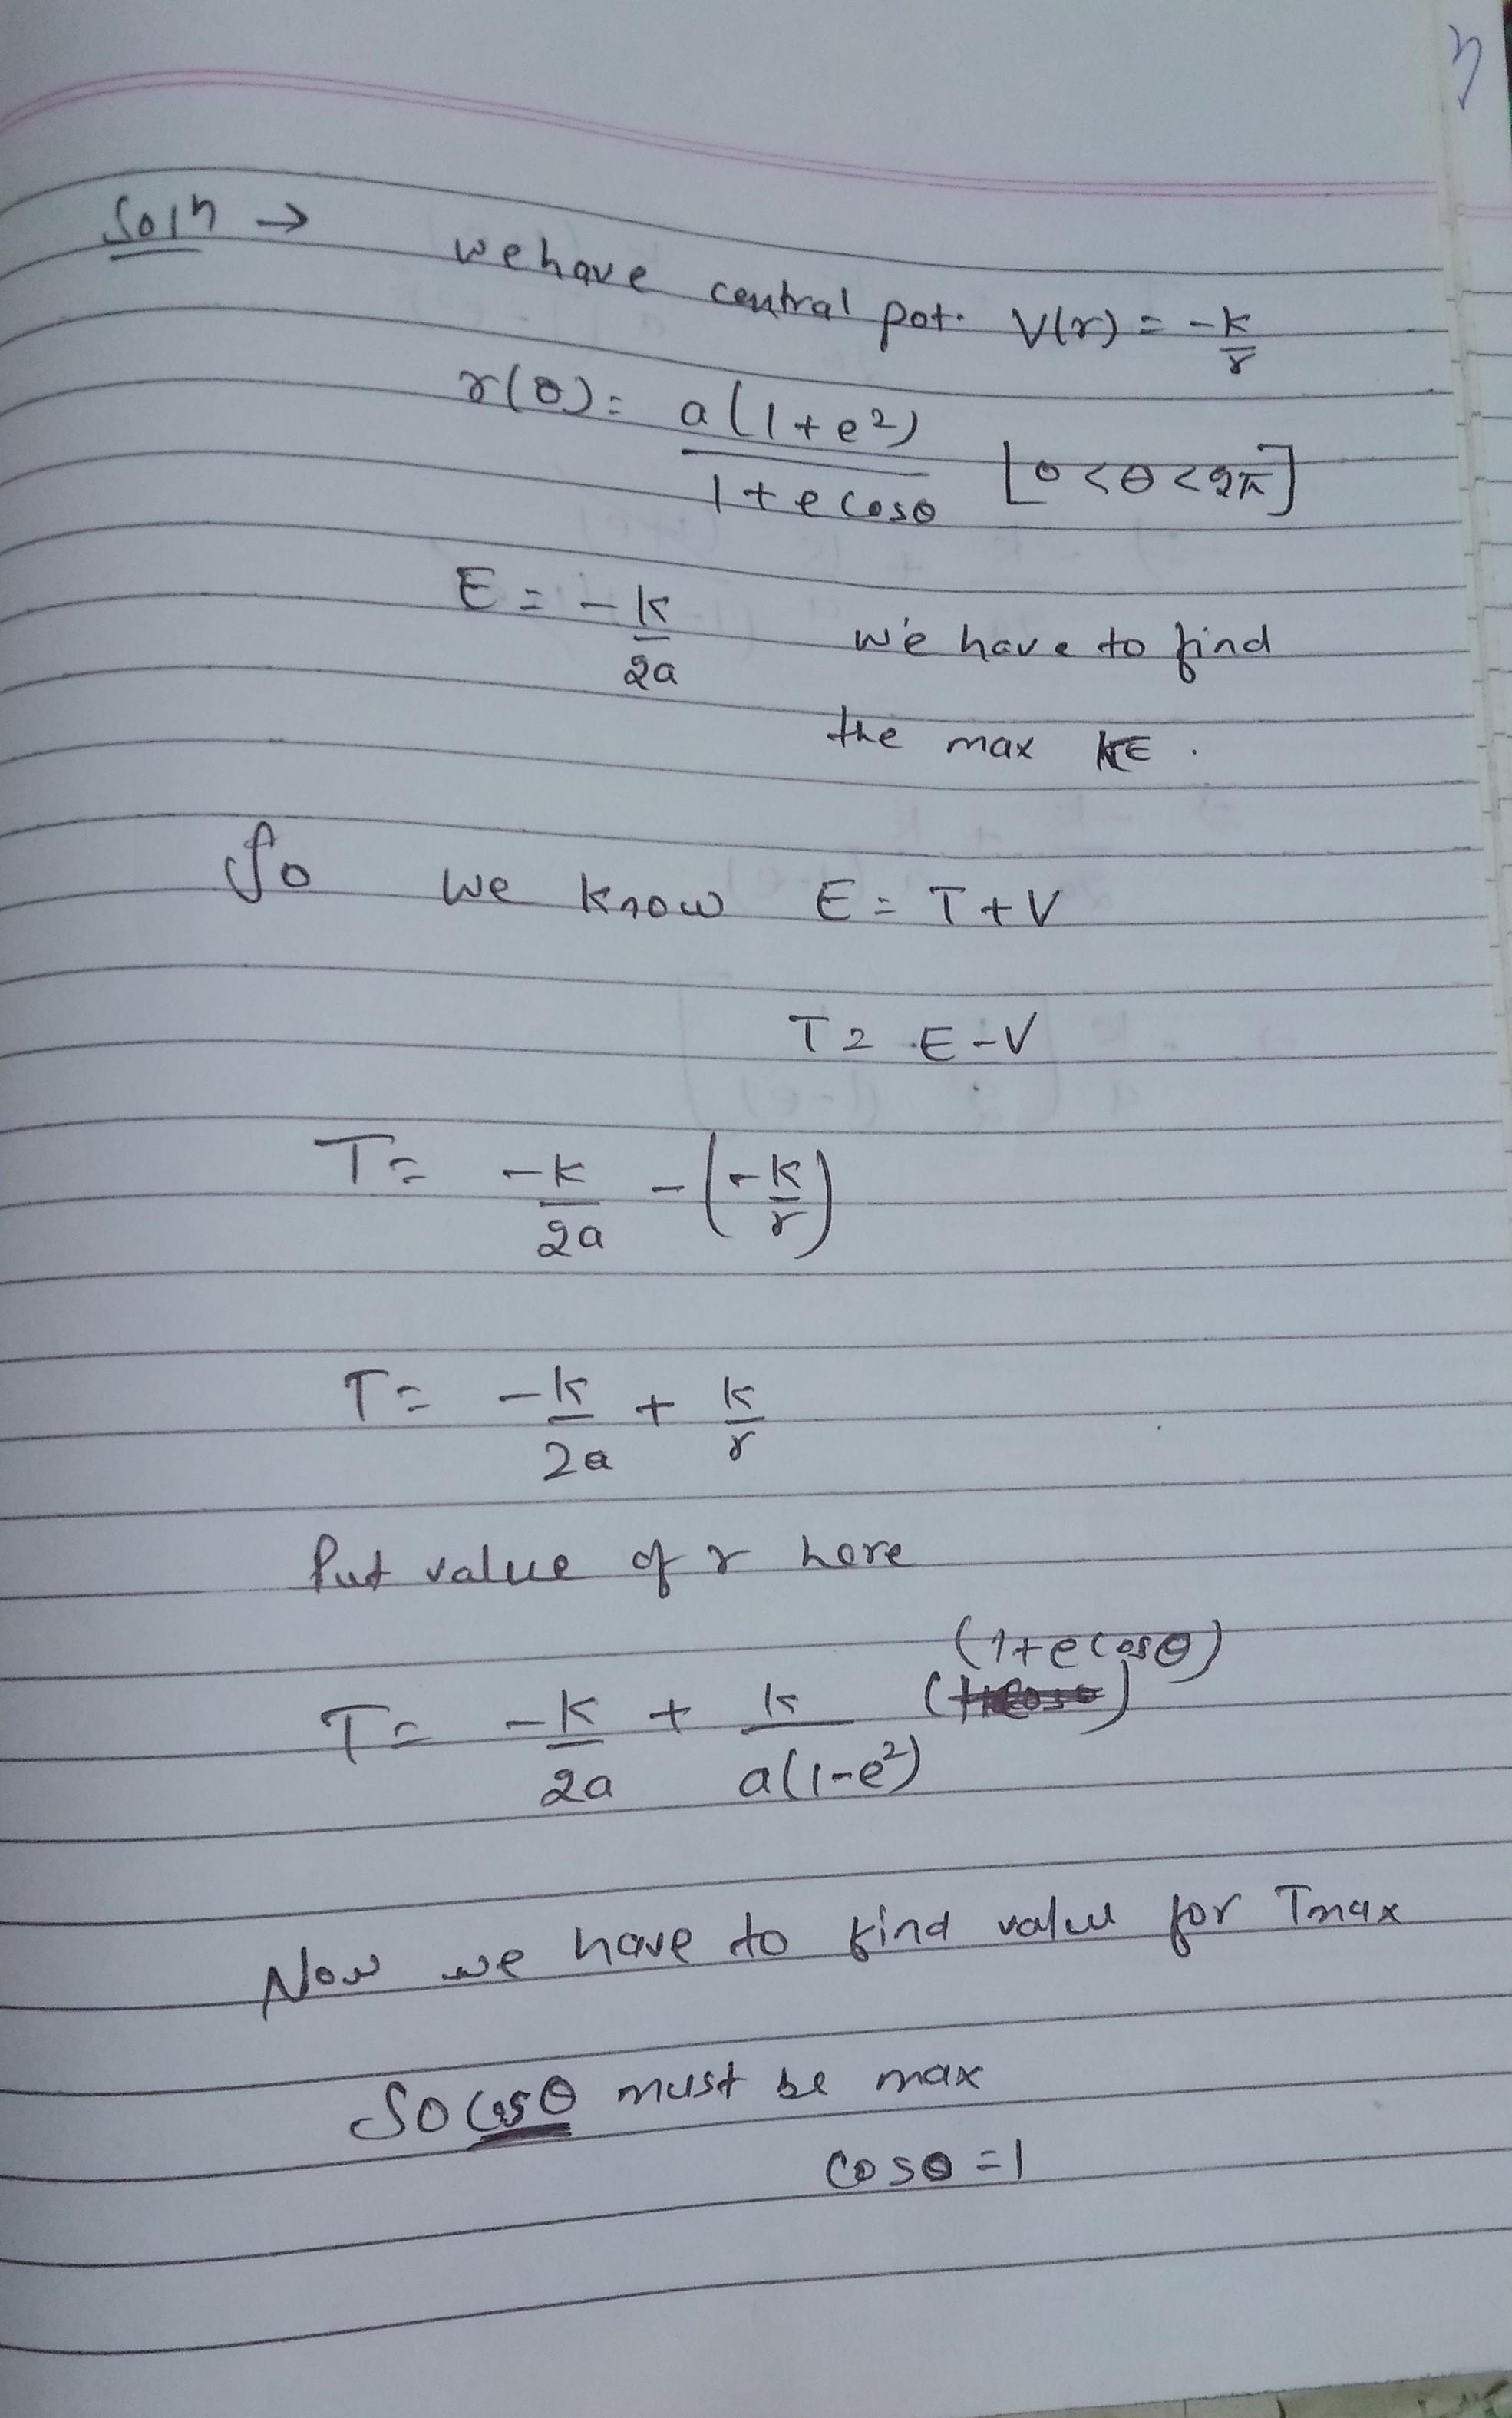 Soln → we have central pot. V(r) = -k/r
r(θ) = a(1+e²)/1+ecosθ [0<θ<2π]
E = -k/2a we have to find
the max KE.
So we know E = T+V
T = E-V
T = -k/2a - (-k/r)
T = -k/2a + k/r
Put value of r here
T = -k/2a + k/a(1-e²) (1+ecosθ)
Now we have to find value for Tmax
So cosθ must be max
cosθ=1